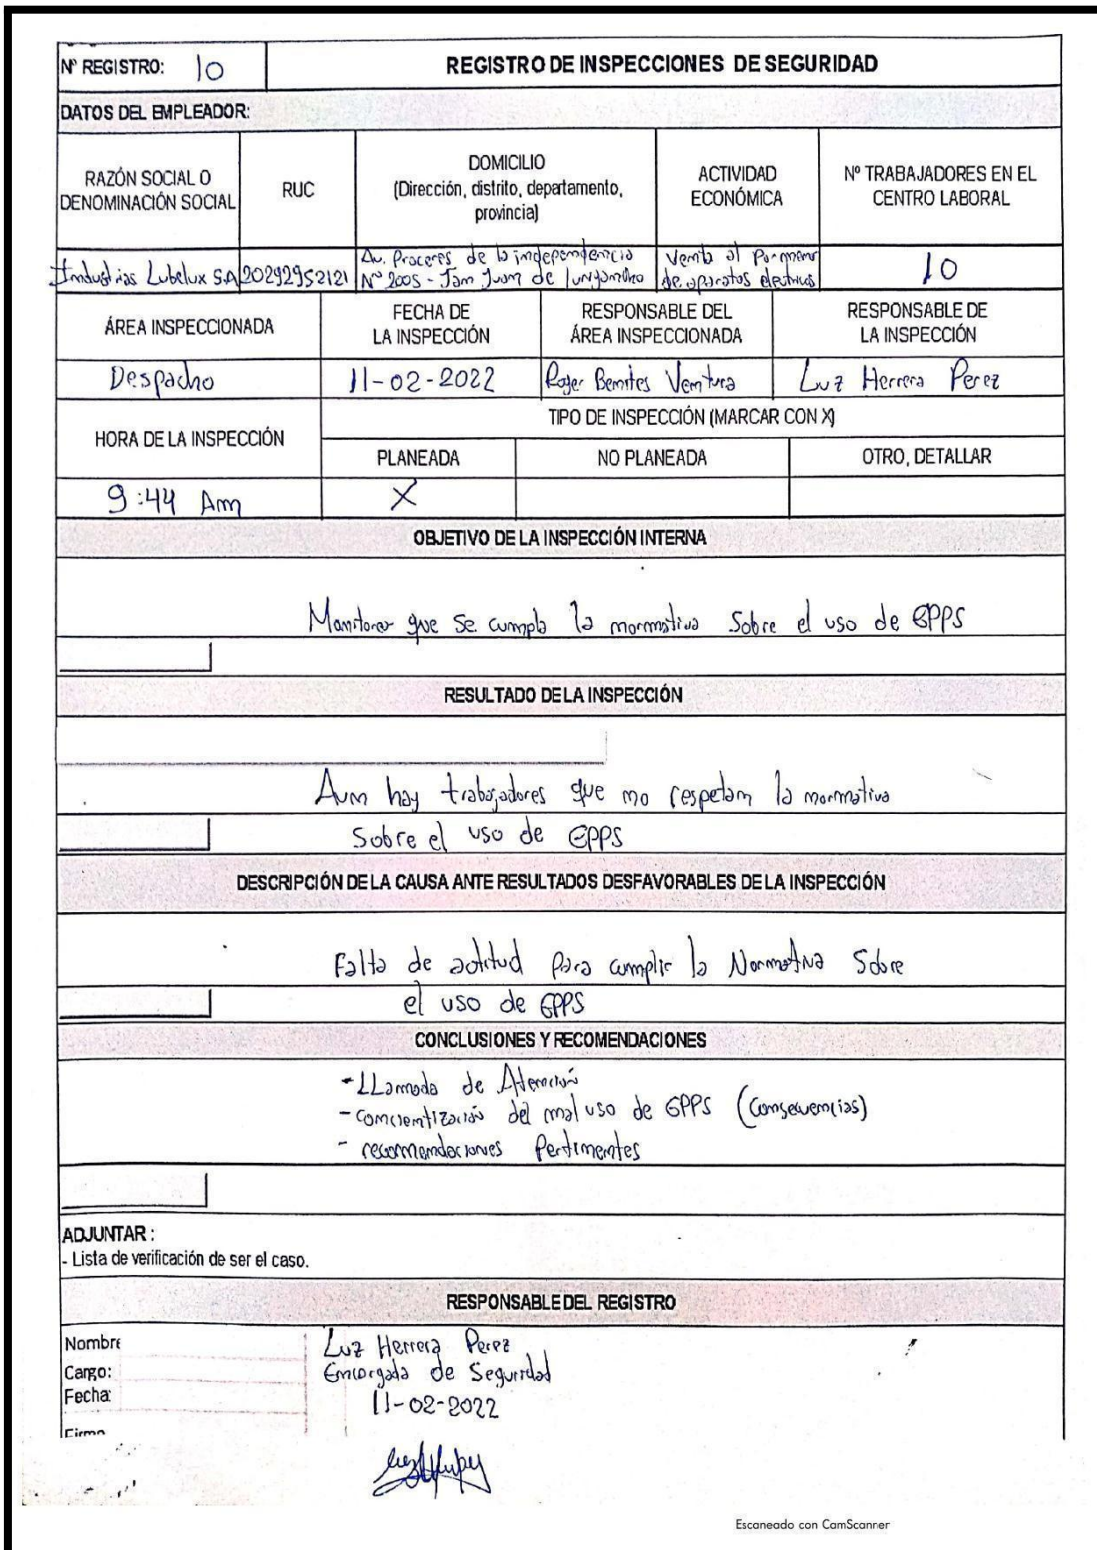 Nº REGISTRO: 10
REGISTRO DE INSPECCIONES DE SEGURIDAD
DATOS DEL EMPLEADOR:
RAZÓN SOCIAL O
DENOMINACIÓN SOCIAL
RUC
DOMICILIO
(Dirección, distrito, departamento,
provincia)
ACTIVIDAD
ECONÓMICA
Nº TRABAJADORES EN EL
CENTRO LABORAL
Industrias Lubelux S.A
20292952121
Av. Proceres de la independencia
Nº 2005 - San Juan de lurigancho
Venta al Por menor
de aparatos electricos
10
ÁREA INSPECCIONADA
FECHA DE
LA INSPECCIÓN
RESPONSABLE DEL
ÁREA INSPECCIONADA
RESPONSABLE DE
LA INSPECCIÓN
Despacho
11-02-2022
Roger Benites Ventura
Luz Herrera Perez
HORA DE LA INSPECCIÓN
TIPO DE INSPECCIÓN (MARCAR CON X)
PLANEADA
NO PLANEADA
OTRO, DETALLAR
9:44 Am
X
OBJETIVO DE LA INSPECCIÓN INTERNA
Monitorear que se cumpla la normativa Sobre el uso de EPPS
RESULTADO DE LA INSPECCIÓN
Aun hay trabajadores que no respetan la normativa
Sobre el uso de EPPS
DESCRIPCIÓN DE LA CAUSA ANTE RESULTADOS DESFAVORABLES DE LA INSPECCIÓN
Falta de actitud Para cumplir la Normativa Sobre
el uso de EPPS
CONCLUSIONES Y RECOMENDACIONES
- LLamada de Atención
- concientización del mal uso de EPPS (Consecuencias)
- recomendaciones Pertinentes
ADJUNTAR :
- Lista de verificación de ser el caso.
RESPONSABLE DEL REGISTRO
Nombre Luz Herrera Perez
Cargo: Encargada de Seguridad
Fecha: 11-02-2022
Firma
Escaneado con CamScanner